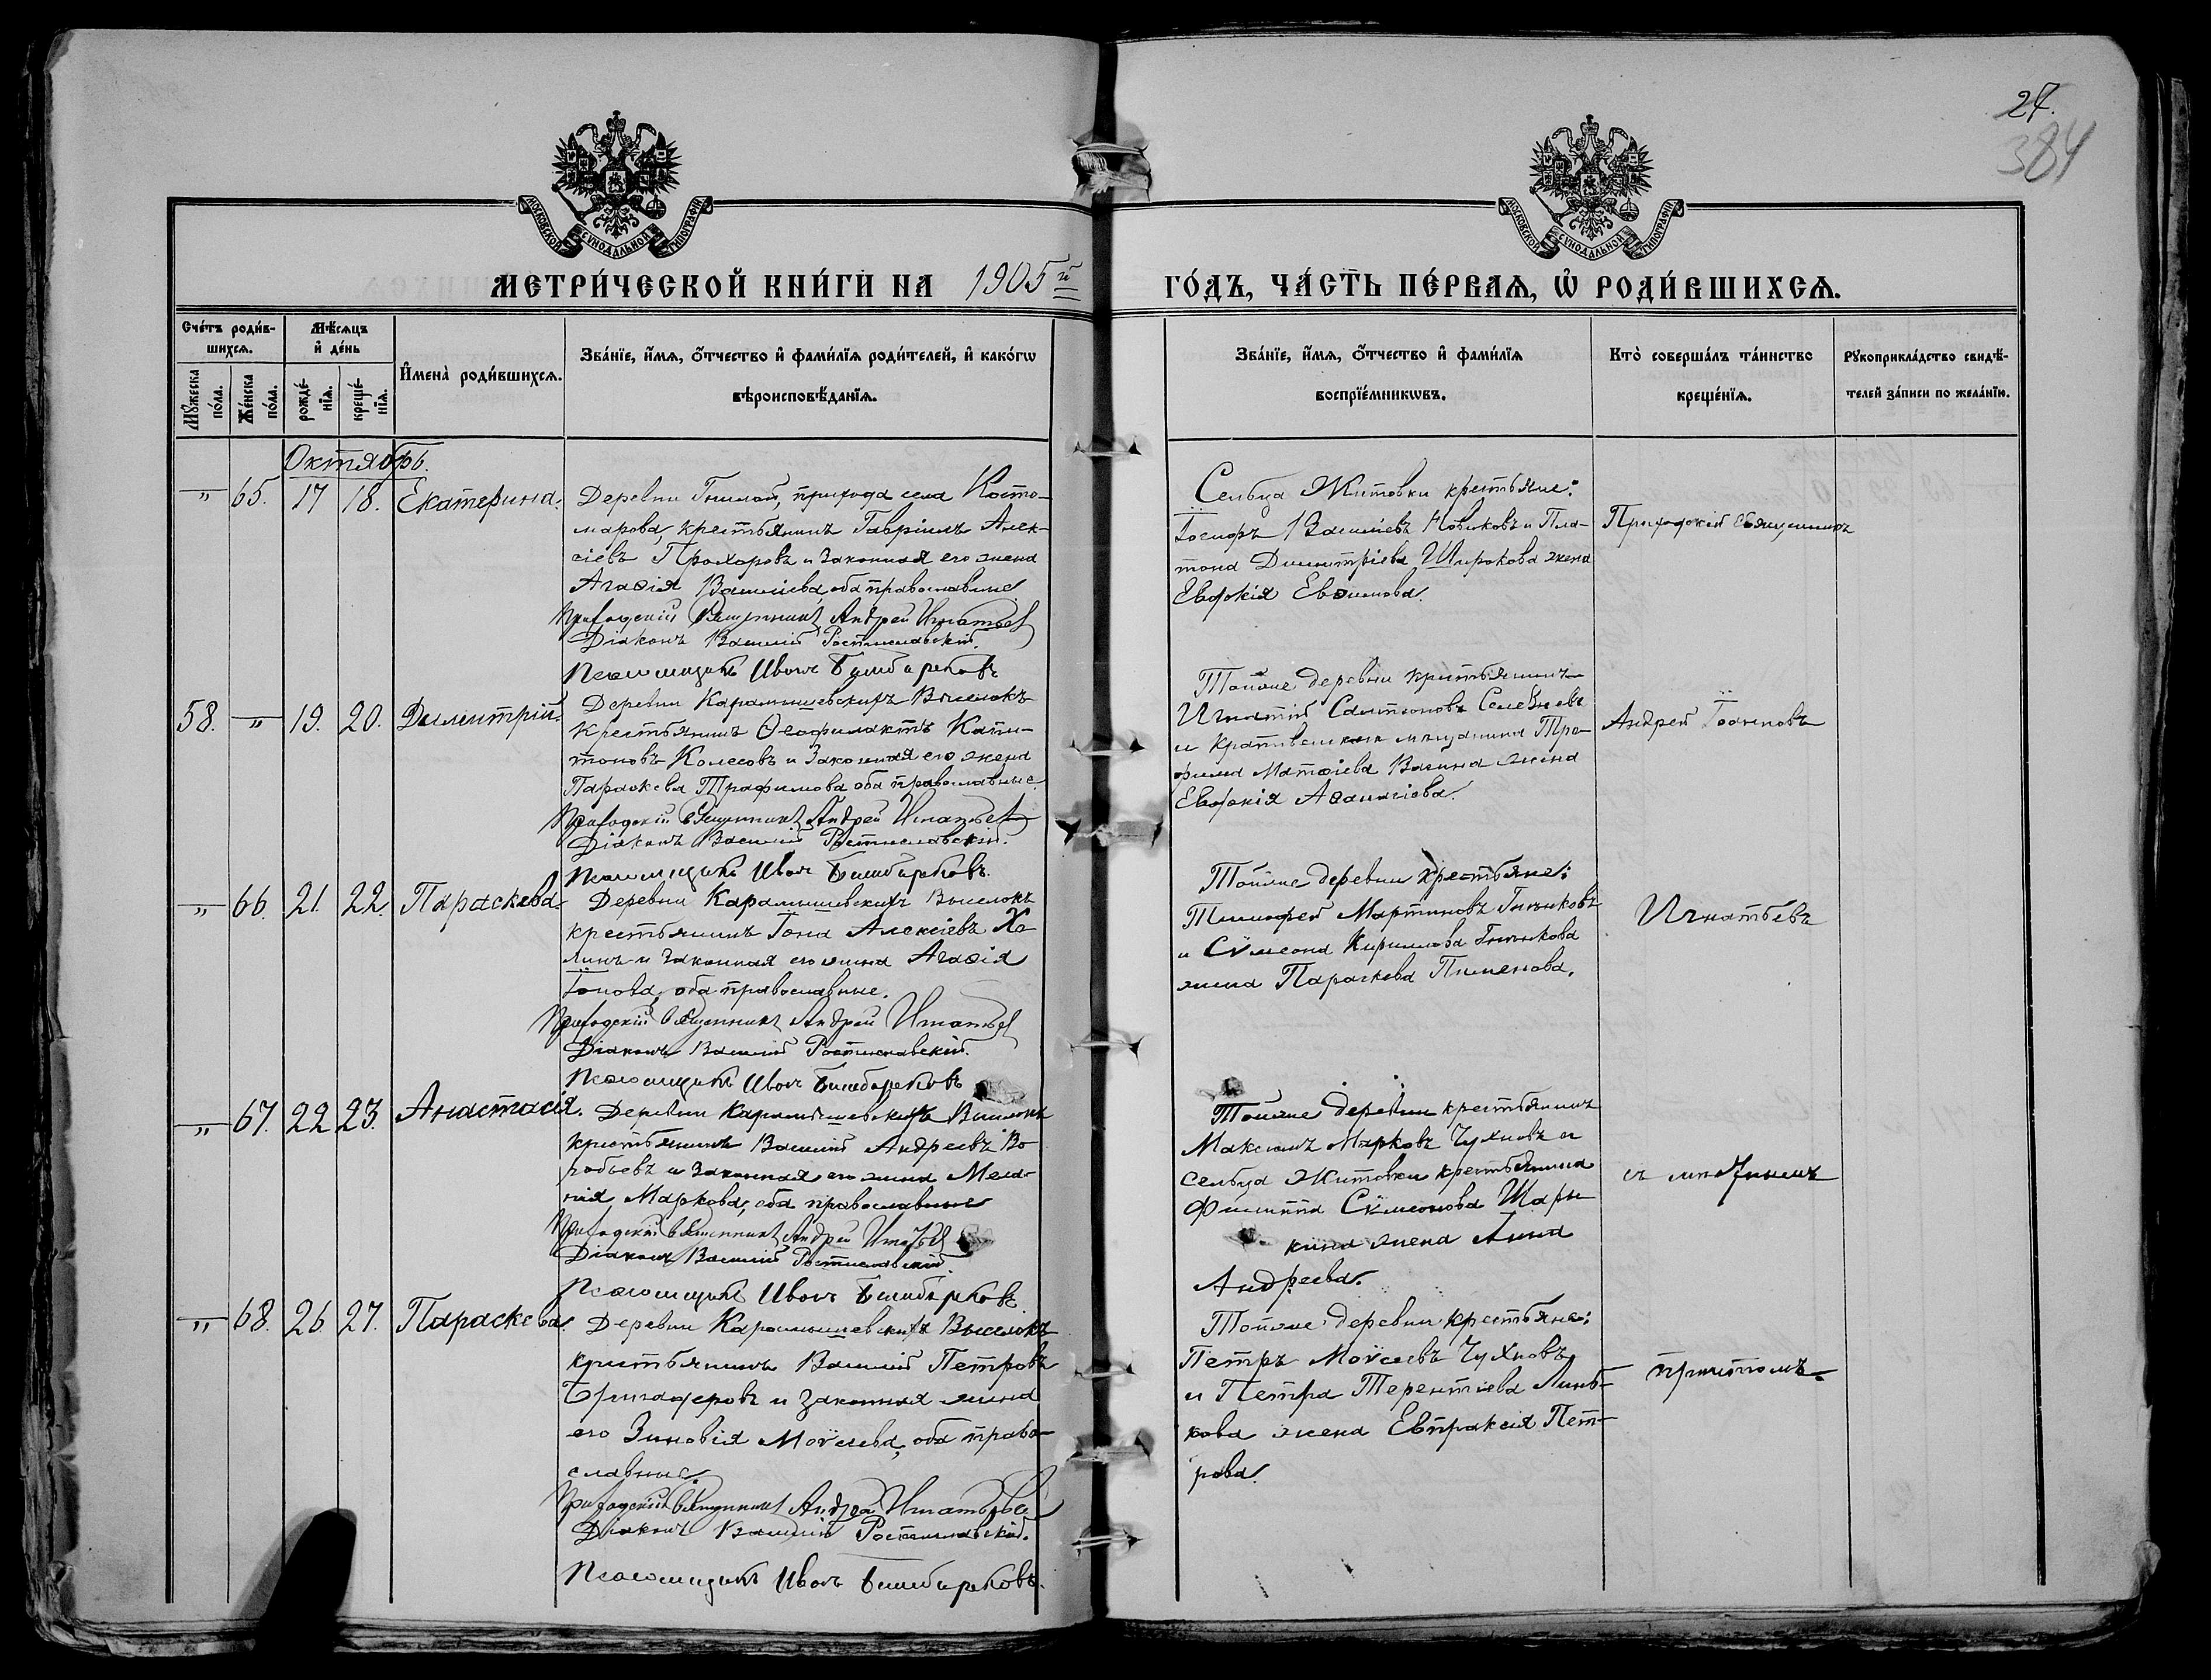 27.
384
МОСКОВСКОЙ СѴНОДАЛЬНОЙ ТИПОГРАФІИ
МОСКОВСКОЙ СѴНОДАЛЬНОЙ ТИПОГРАФІИ
МЕТРИ́ЧЕСКОЙ КНИ́ГИ НА 1905й
ГО́ДЪ, ЧА́СТЬ ПЕ́РВАѦ, Ѡ҆ РОДИ́ВШИХСѦ.
Сче́тъ роди́в-
шихсѧ.
Мꙋ́жеска по́ла.
Же́нска по́ла.
Мѣ́сѧцъ
и҆ де́нь
рожде́-
нїѧ.
креще́-
нїѧ.
И҆мена̀ роди́вшихсѧ.
Зва́нїе, и҆́мѧ, ѻ҆́тчество и҆ фами́лїѧ роди́телей, и҆ како́гѡ
вѣроисповѣ́данїѧ.
Зва́нїе, и҆́мѧ, ѻ҆́тчество и҆ фами́лїѧ
воспрїе́мникѡвъ.
Кто̀ соверша́лъ та́инство
креще́нїѧ.
Рꙋкоприкла́дство свидѣ́-
телей за́писи по жела́нїю.
Октябрь.
" 65. 17 18. Екатерина.
Деревни Гнилой, прихода села Косто-
марова, крестьянинъ Гавріилъ Алек-
сіевъ Прохоровъ и законная его жена
Агаѳія Василіева, оба православные
Приходскій Священникъ Андрей Игнатьев
Діаконъ Василій Ростиславскій.
Псаломщикъ Иванъ
Сельца Житовки крестьяне:
Іосифъ Василіевъ Новиковъ и Пла-
тона Димитріева Широкова жена
Евдокія Евѳимова.
Приходскій Священникъ
58. " 19. 20. Димитрій.
Деревни Карамышевскихъ Выселокъ
крестьянинъ Ѳеофилактъ Капи-
тоновъ Колесовъ и законная его жена
Параскева Трофимова оба православные.
Приходскій Священникъ Андрей Игнатьев
Діаконъ Василій Ростиславскій.
Псаломщикъ Иванъ
Тойже деревни крестьянинъ
Игнатій Селезневъ
и Крапивенскаго мѣщанина Тро-
фима Матѳіева жена
Евдокія Аѳанасіева.
Андрей Іоанновъ
" 66. 21. 22. Параскева.
Деревни Карамышевскихъ Выселокъ
крестьянинъ Іона Алексіевъ Ха-
линъ и законная его жена Агаѳія
Іонова, оба православные.
Приходскій Священникъ Андрей Игнатьев
Діаконъ Василій Ростиславскій.
Псаломщикъ Иванъ
Тойже деревни крестьяне:
Тимофей Мартиновъ
и Сѵмеона Кириллова
жена Параскева Пименова.
Игнатьевъ
" 67. 22 23. Анастасія.
Деревни Карамышевскихъ Выселокъ
крестьянинъ Василій Андреевъ Во-
робьевъ и законная его жена Мела-
нія Маркова, оба православные
Приходскій Священникъ Андрей Игнатьев
Діаконъ Василій Ростиславскій.
Псаломщикъ Иванъ
Тойже деревни крестьянинъ
Максимъ Марковъ Чухновъ и
сельца Житовки крестьянина
Филиппа Сѵмеонова Шары-
кина жена Анна
Андреева.
съ
" 68. 26. 27. Параскева.
Деревни Карамышевскихъ Выселокъ
крестьянинъ Василій Петровъ
Бригадеровъ и законная жена
его Зиновія Моѵсеева, оба право-
славные.
Приходскій Священникъ Андрей Игнатьев
Діаконъ Василій Ростиславскій.
Псаломщикъ Иванъ
Тойже деревни крестьяне:
Петръ Моѵсеевъ Чухновъ
и Петра Терентіева Линь-
кова жена Евпраксія Пет-
рова.
причтомъ.